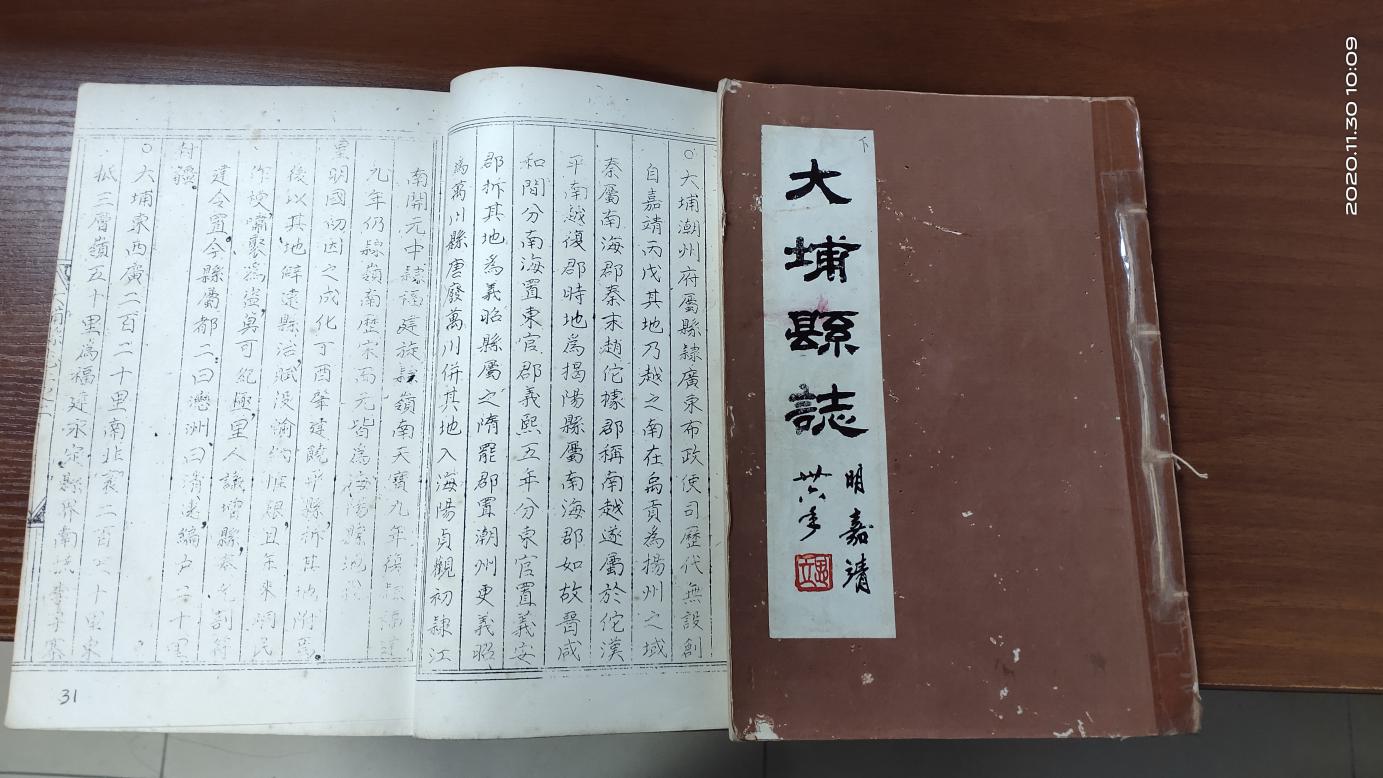 下
大埔縣誌
明嘉靖
卅六年
○大埔潮州府屬縣隸廣東布政使司歷代無設創
自嘉靖丙戌其地乃越之南在禹貢為揚州之域
秦屬南海郡秦末趙佗據郡稱南越遂屬於佗漢
平南越復郡時地為揭陽縣屬南海郡如故晉咸
和間分南海置東官郡義熙五年分東官置義安
郡拆其地為義昭縣屬之隋罷郡置潮州更義昭
為萬川縣唐廢萬川併其地入海陽貞觀初隸江
南開元中隸福建旋隸嶺南天寶九年復
元年仍隸嶺南歷宋而元皆為海陽縣地
皇明國初因之成化丁酉肇建饒平縣拆其地附焉
後以其地僻遠縣治賦没
嘯聚為 可紀極里人議 縣
建令置今縣屬都二曰㳬洲曰清遠編户二十里
封疆
○大埔東西廣二百二十里南北袤二百 十里東
抵三層嶺五十里為福建永定縣界南
31
2020.11.30 10:09